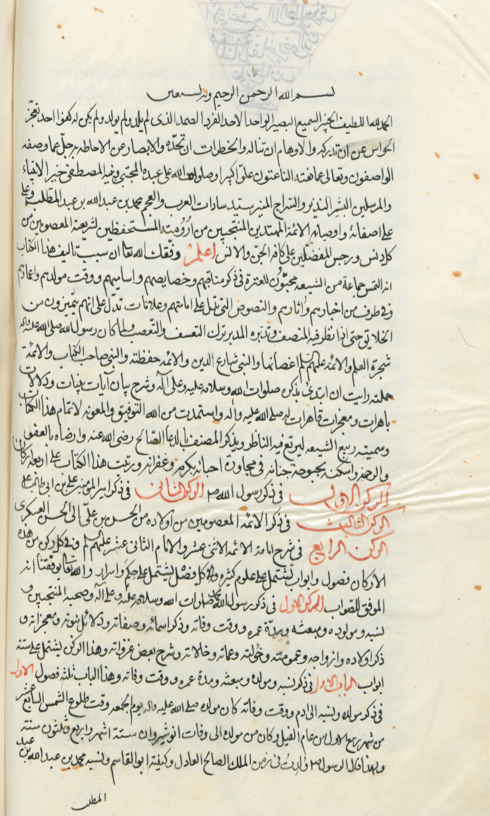 بسم الله الرحمن الرحيم وبه نستعين
الحمد لله اللطيف الخبير السميع البصير الواحد الاحد الفرد الصمد الذى لم يلد ولم يولد ولم يكن له كفوا احد
الحواس عن ان تدركه والاوهام ان تناله والخطرات ان تحده والابصار عن الاحاطة به جل عما وصفه
الواصفون وتعالى عما نعته الناعتون علوا كبيرا وصلوات الله على عبده المجتبى ونبيه المصطفى خير الانبياء
والمرسلين البشير النذير والسراج المنير سيد سادات العرب والعجم محمد بن عبد الله بن عبد المطلب وعلى
اصفيائه واوصيائه الائمة المهتدين المنتجبين من ارومته المستحفظين لشريعته المعصومين من
كل دنس ورجس المفضلين على كافة الجن والانس اعلم وفقك الله تعالى ان سبب تاليف هذا الكتاب
انه التمس جماعة من الشيعة محبون للعترة فى ذكر مناقبهم وخصايصهم واساميهم ووقت مولدهم واعمارهم
وفى طرف من اخبارهم واثارهم والنصوص التى تدل على امامتهم وعلامات تدل على انهم يتميزون من
الخلائق حتى اذا نظر فيه المنصف وتدبره المدبر ترك التعسف والتعصب ولما كان رسول الله صلى الله عليه واله
شجرة العلم والائمة عليهم السلام اغصانها والنبى شارع الدين والائمة حفظته والنبى صاحب الكتاب والائمة
حملته رايت ان ابتدى بذكره صلوات الله وسلامه عليه وعلى اله وشرح بيان ايات بينات ودلالات
باهرات ومعجزات قاهرات له صلى الله عليه واله واستمدت من الله التوفيق والمعونة لاتمام هذا الكتاب
وسميته ربيع الشيعه ليرتع فيه الناظر ويذكر المصنف بالدعاء الصالح رضى الله عنه وارضاه بالعفو
والرحمة واسكنه بحبوحة جنانه فى مجاورة احبائه بكرمه وغفرانه ورتبت هذا الكتاب على اربعة اركان
الركن الاول فى ذكر رسول الله الركن الثانى فى ذكر امير المومنين على بن ابى طالب
الركن الثالث فى ذكر الائمة المعصومين من اولاده من الحسن بن على الى الحسن العسكرى
الركن الرابع فى شرح امامة الائمة الاثنى عشر والامام الثانى عشر عليهم السلام وفى كل ركن من هذه
الاركان فصول وابواب تشتمل على علوم كثيرة وكل فصل يشتمل على حكم واسرار والله تعالى يوفقنا انه
الموفق للصواب الركن الاول فى ذكر رسول الله صلوات الله وسلامه عليه وعلى اله وصحبه المنتجبين و
نسبه ومولوده ومبعثه ومدة عمره ووقت وفاته وذكر اسمائه وصفاته ودلائل نبوته ومعجزاته و
ذكر اولاده وازواجه وعمومته وخولته وعماته وخالاته وشرح بعض غزواته وهذا الركن يشتمل على ستة
ابواب الباب الاول فى ذكر نسبه ومولده ومبعثه ومدة عمره ووقت وفاته وهذا الباب ثلثه فصول الاول
فى ذكر مولده ونسبه الى ادم ووقت وفاته كان مولده صلى الله عليه واله يوم الجمعه وقت طلوع الشمس السابع عشر
من شهر ربيع الاول من عام الفيل وكان من مولده الى وفات انوشيروان ستة اشهر واربع وثلثون سنة
ولهذا قال الرسول ولدت فى زمن الملك الصالح العادل وكنيته ابو القاسم ونسبه محمد بن عبد الله بن عبد
المطلب